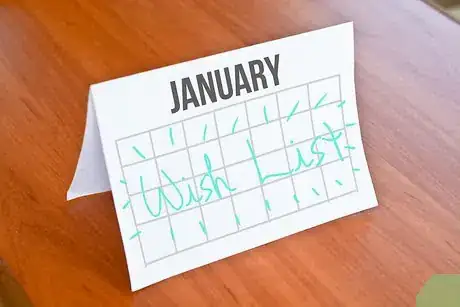 JANUARY
Wish List